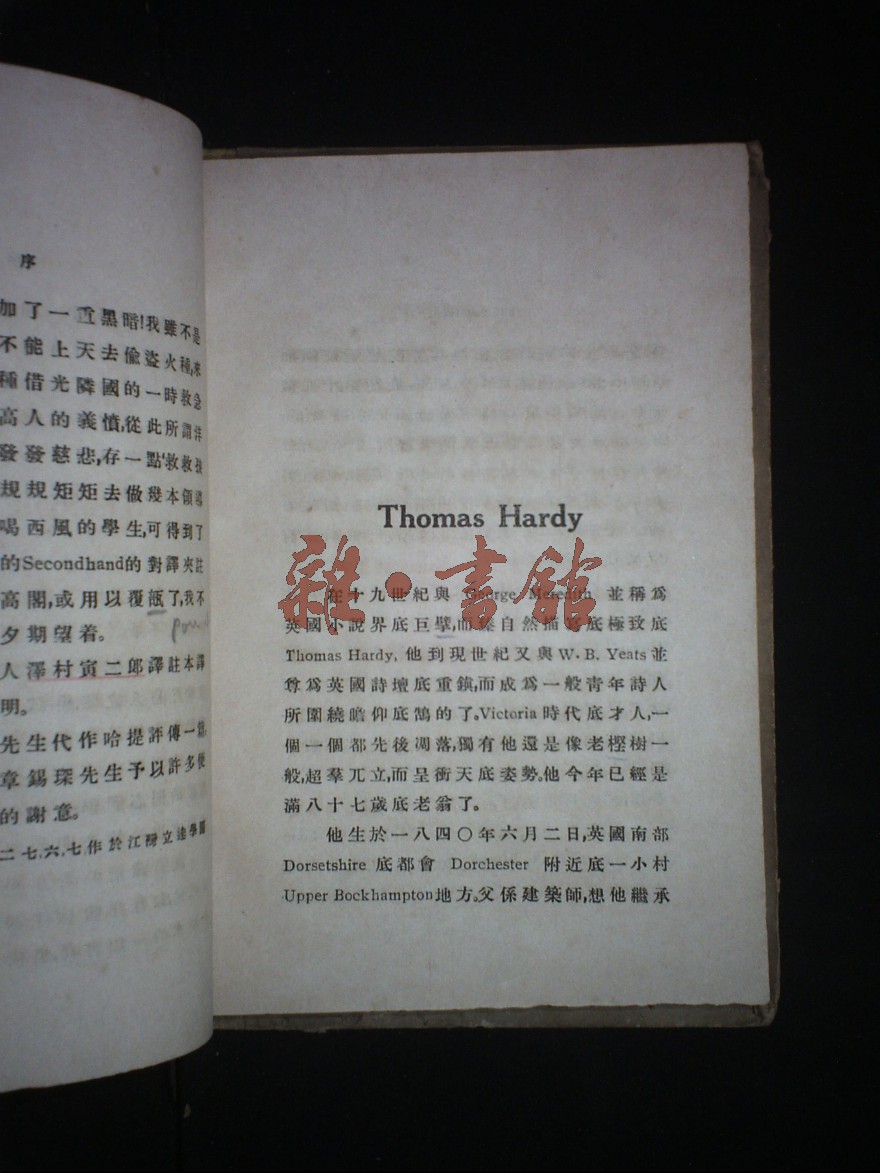 序
加了一重黑暗!我雖不是
不能上天去偷盜火種,來
種借光隣國的一時救急
高人的義憤,從此所謂
發發慈悲,存一點'救救
規規矩矩去做幾本領導
喝西風的學生,可得到了
的Secondhand的對譯夾註
高閣,或用以覆瓿了,我不
夕期望着。
人澤村寅二郎譯註本譯
明。
先生代作哈提評傳一篇,
章錫琛先生予以許多便
的謝意。
二七,六,七作於江灣立達學園
Thomas Hardy
雜·書館
在十九世紀與 George Meredith 並稱爲
英國小說界底巨擘,而臻自然描寫底極致底
Thomas Hardy, 他到現世紀又與 W. B. Yeats 並
尊爲英國詩壇底重鎮,而成爲一般青年詩人
所圍繞瞻仰底鵠的了。Victoria 時代底才人,一
個一個都先後凋落,獨有他還是像老樫樹一
般,超羣兀立,而呈衝天底姿勢。他今年已經是
滿八十七歲底老翁了。
他生於一八四〇年六月二日,英國南部
Dorsetshire 底都會 Dorchester 附近底一小村
Upper Bockhampton 地方。父係建築師,想他繼承